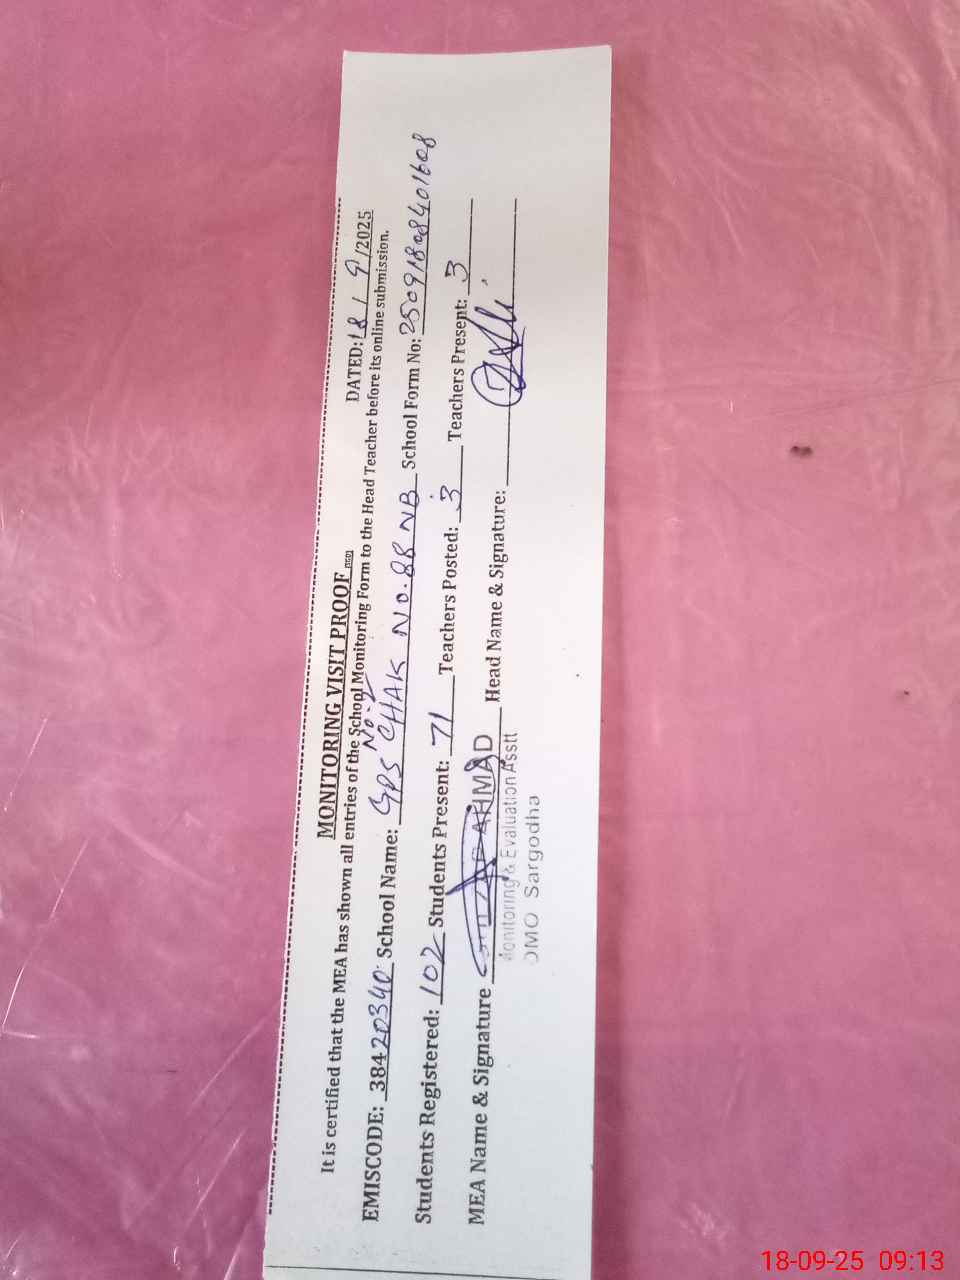 MONITORING VISIT PROOF
DATED: 18 / 9 /2025
It is certified that the MEA has shown all entries of the School Monitoring Form to the Head Teacher before its online submission.
No-2
EMISCODE: 38420340 School Name: GPS CHAK No.88 NB School Form No: 25091808401608
Students Registered: 102 Students Present: 71 Teachers Posted: 3 Teachers Present: 3
MEA Name & Signature AHMAD Head Name & Signature:
Monitoring & Evaluation Asstt
DMO Sargodha
18-09-25 09:13